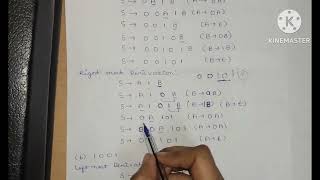 S → 0 A 1 B (A→0A)
S → 0 0 A 1 B (A→0A)
S → 0 0 1 B (A→ε)
S → 0 0 1 0 B (B→0B)
S → 0 0 1 0 1 B (B→1B)
S → 0 0 1 0 1 (B→ε)
KINEMASTER
Right most Derivation:
S → A 1 B
S → A 1 0 B (B→0B)
S → A 1 0 1 B (B→1B) (B→ε)
S → 0 A 1 0 1 (A→0A)
S → 0 0 A 1 0 1 (A→0A)
S → 0 0 1 0 1 (A→ε)
(b) 1 0 0 1
Left most Derivation